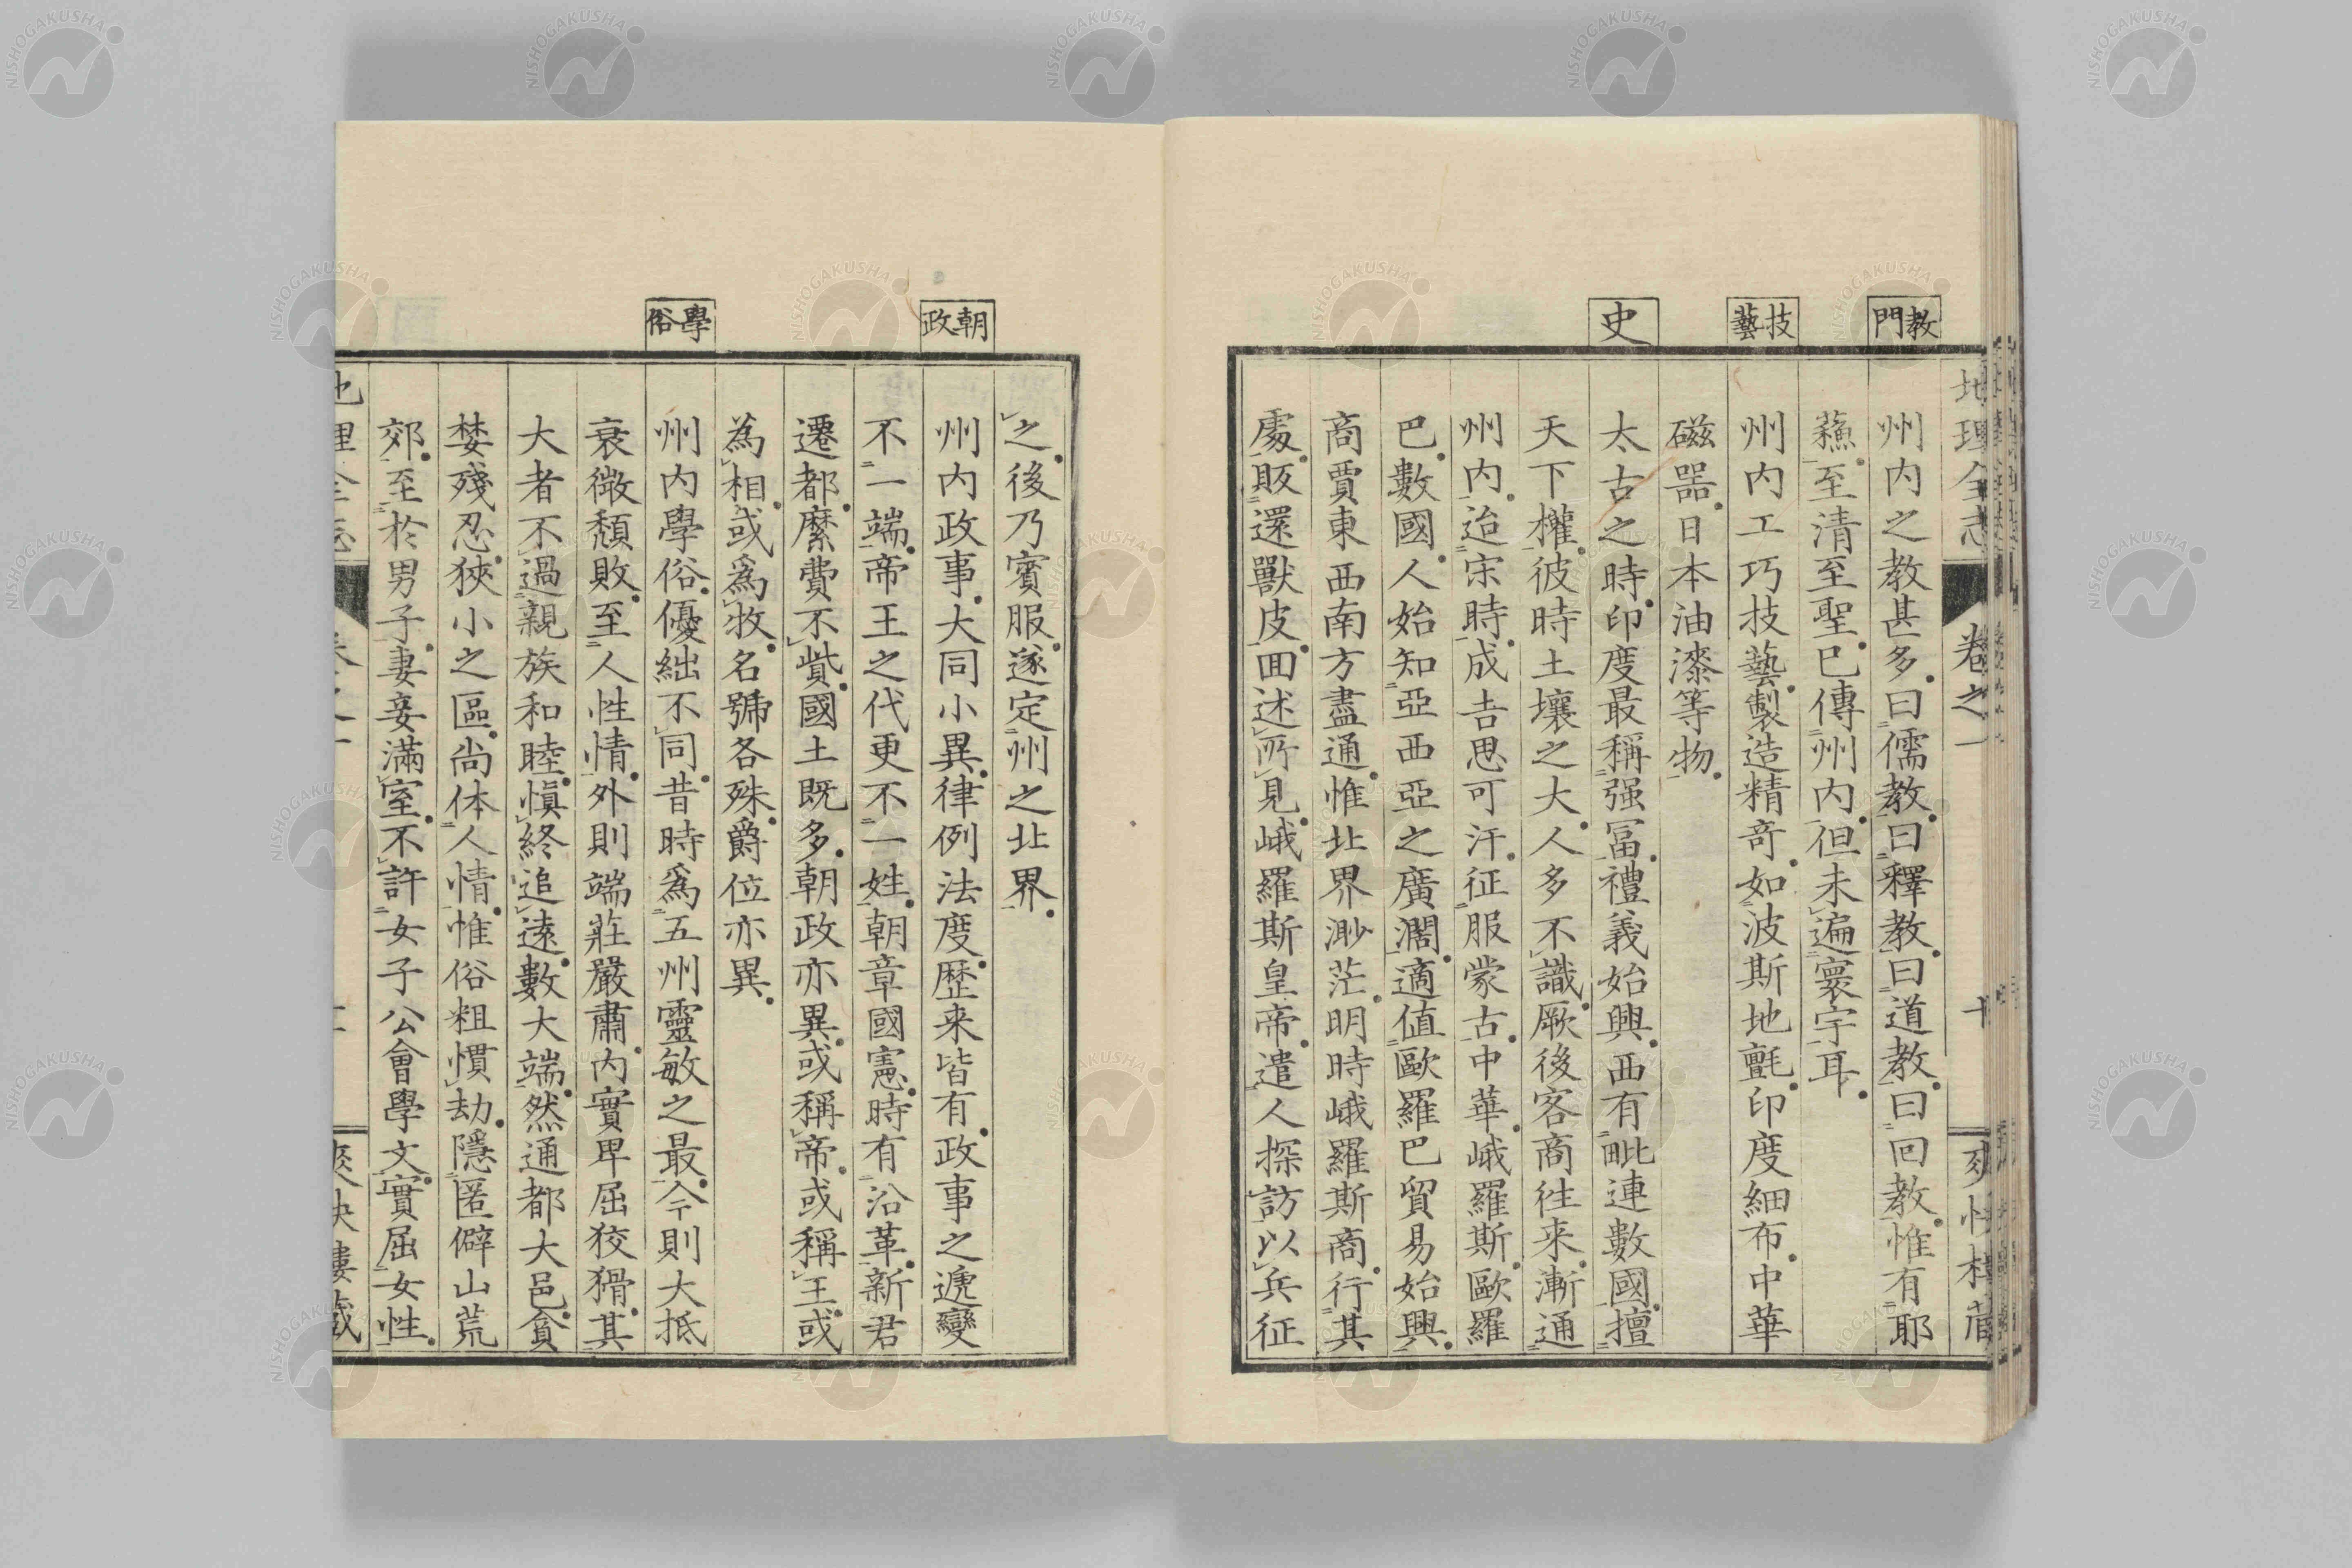 地理全志 卷之一 十
教門
州内之教甚多曰儒教曰釋教曰道教曰回教惟有耶
蘓至清至聖已傳州内但未遍寰宇耳
技藝
州内工巧技藝製造精奇如波斯地氈印度細布中華
磁器日本油漆等物
史
太古之時印度最稱强冨禮義始興西有毗連數國擅
天下權彼時土壤之大人多不識厥後客商徃来漸通
州内迨宋時成吉思可汗征服蒙古中華峨羅斯歐羅
巴數國人始知亞西亞之廣濶適值歐羅巴貿易始興
商賈東西南方盡通惟北界渺茫明時峨羅斯商行其
處販還獸皮囬述所見峨羅斯皇帝遣人探訪以兵征
之後乃賓服遂定州之北界
朝政
州内政事大同小異律例法度歷来皆有政事之遞變
不一端帝王之代更不一姓朝章國憲時有沿革新君
遷都縻費不貲國土既多朝政亦異或稱帝或稱王或
為相或爲牧名號各殊爵位亦異
學俗
州内學俗優絀不同昔時爲五州靈敏之最今則大抵
衰微頹敗至人性情外則端莊嚴肅内實卑屈狡猾其
大者不過親族和睦愼終追遠數大端然通都大邑貪
婪殘忍狹小之區尚体人情惟俗粗慣劫隱匿僻山荒
郊至於男子妻妾滿室不許女子公會學文實屈女性
地理全志